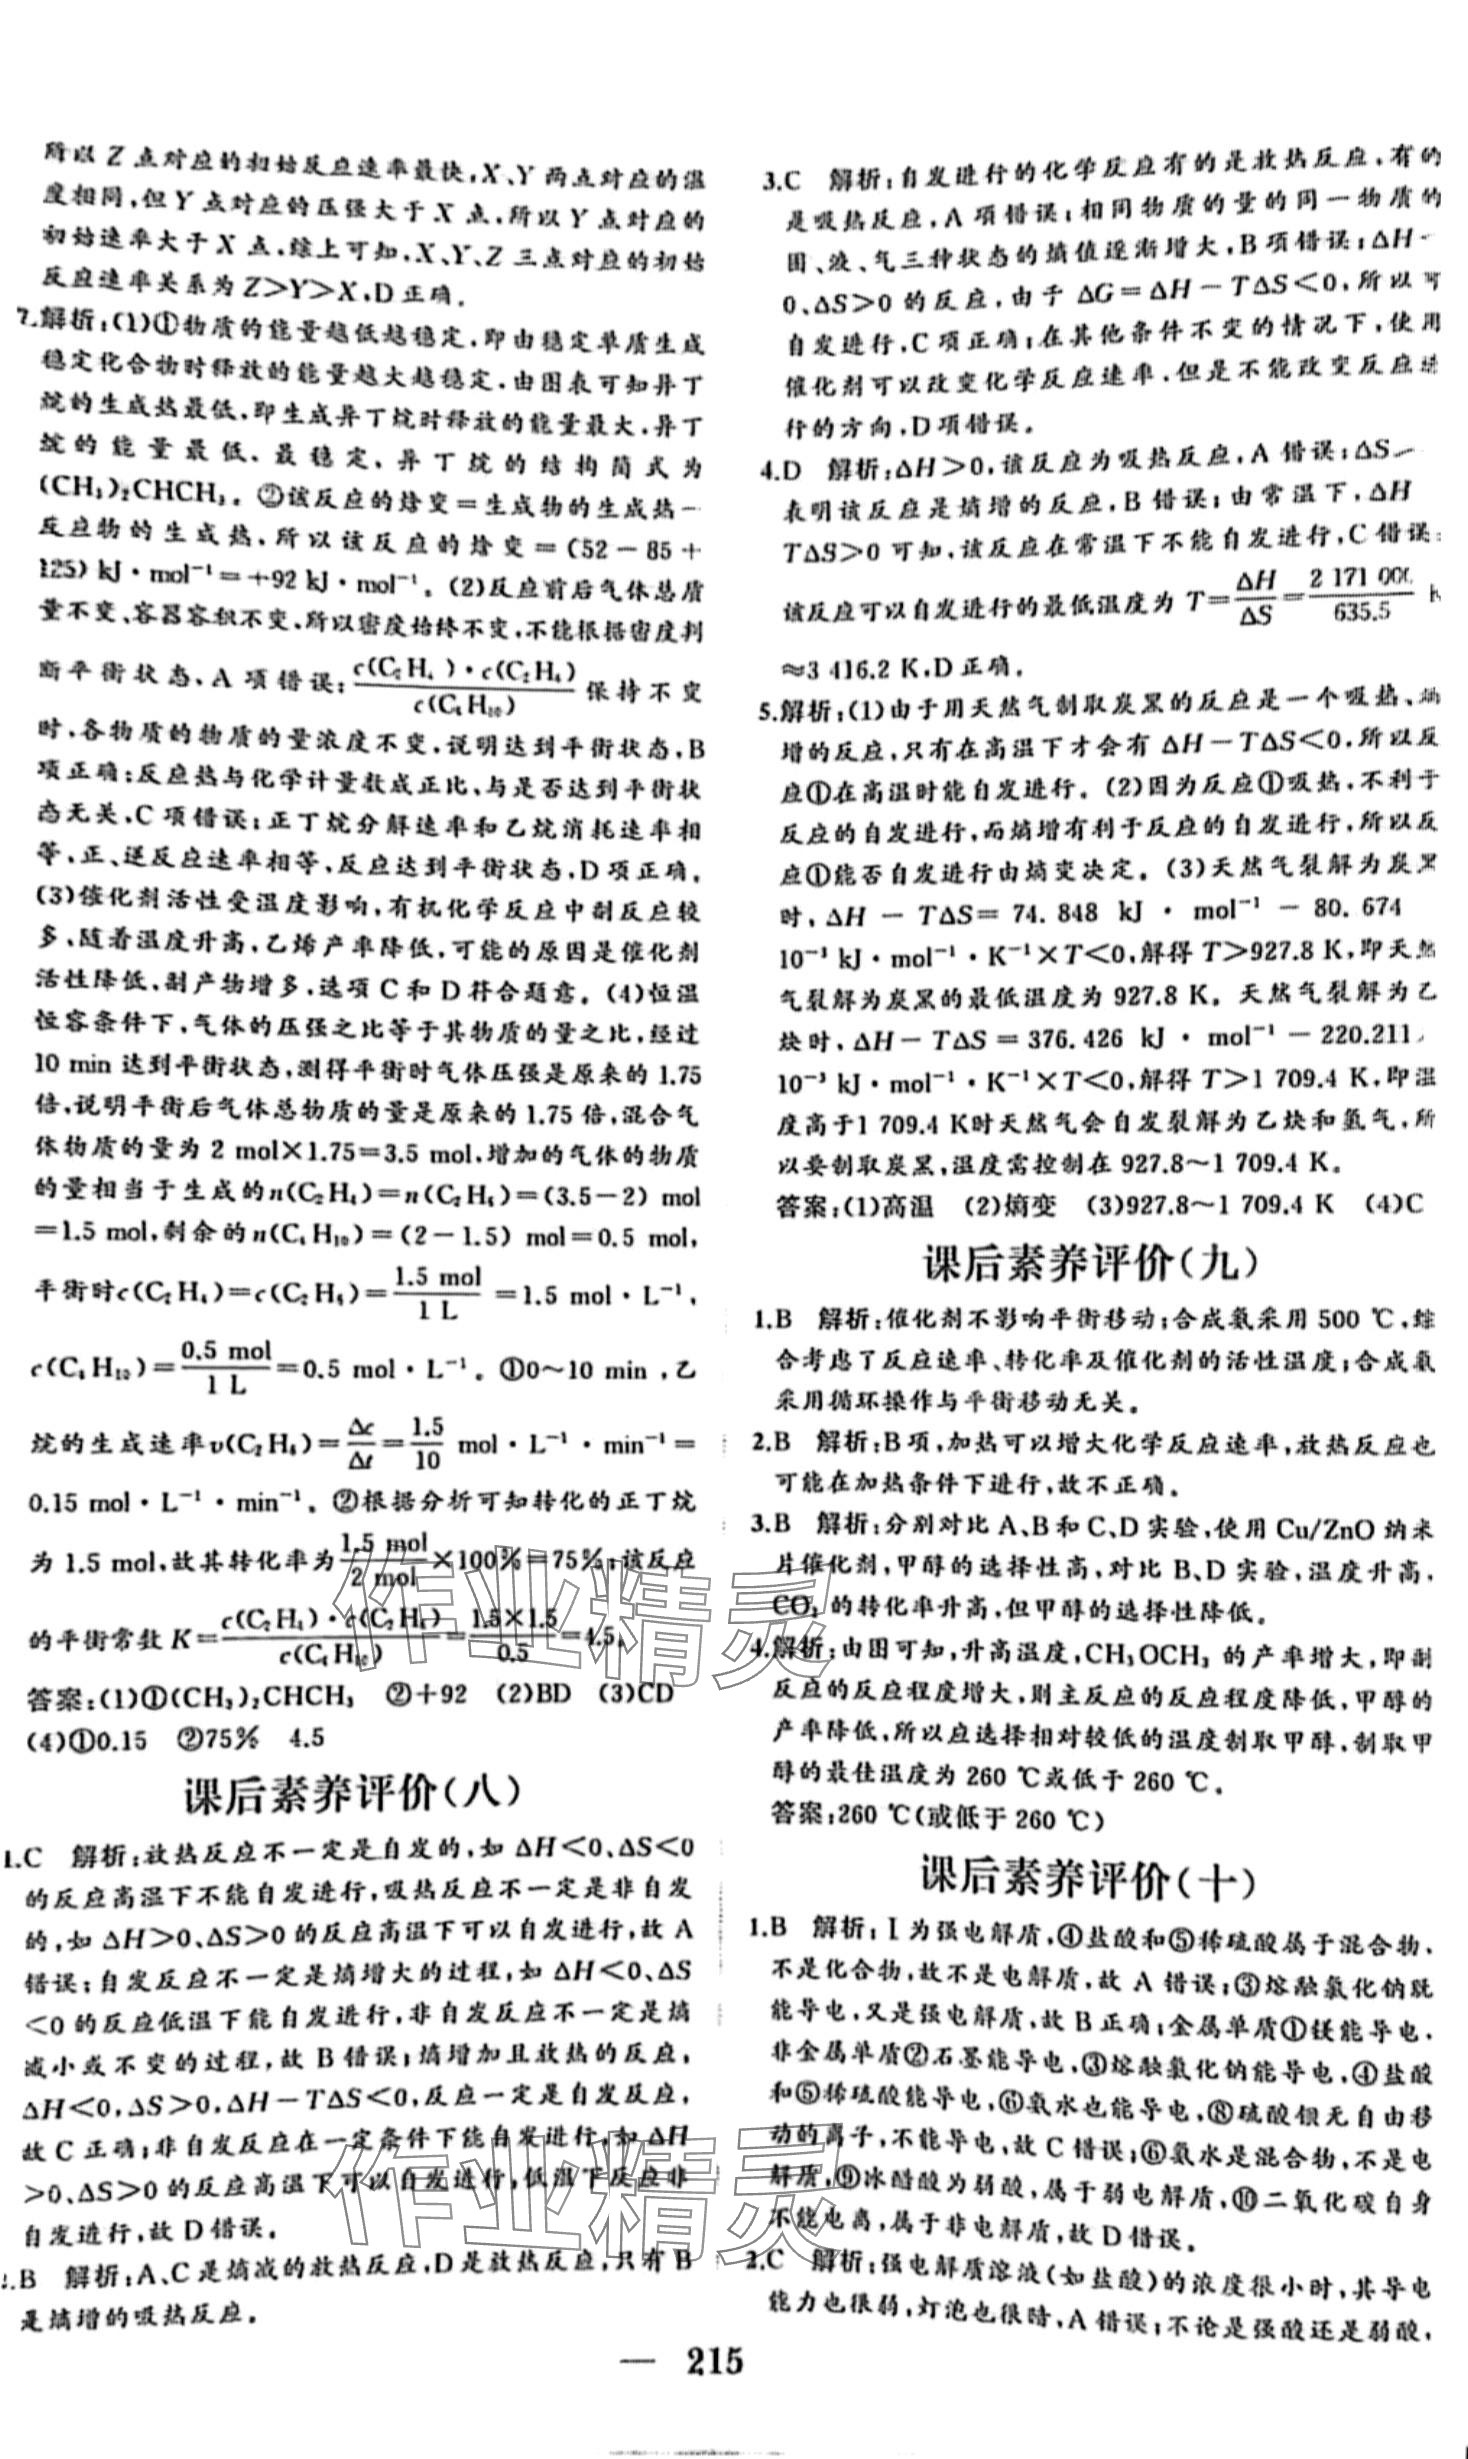 所以 Z 点对应的初始反应速率最快,X、Y 两点对应的温
度相同,但 Y 点对应的压强大于 X 点,所以 Y 点对应的
初始速率大于 X 点,综上可知,X、Y、Z 三点对应的初始
反应速率关系为 Z>Y>X,D 正确。
7.解析:(1)①物质的能量越低越稳定,即由稳定单质生成
稳定化合物时释放的能量越大越稳定,由图表可知异丁
烷的生成热最低,即生成异丁烷时释放的能量最大,异丁
烷的能量最低、最稳定,异丁烷的结构简式为
(CH₃)₂CHCH₃。②该反应的焓变=生成物的生成热-
反应物的生成热,所以该反应的焓变=(52-85+
125) kJ·mol⁻¹=+92 kJ·mol⁻¹。(2)反应前后气体总质
量不变、容器容积不变,所以密度始终不变,不能根据密度判
断平衡状态,A 项错误;c(C₂H₄)·c(C₂H₆)/c(C₄H₁₀) 保持不变
时,各物质的物质的量浓度不变,说明达到平衡状态,B
项正确;反应热与化学计量数成正比,与是否达到平衡状
态无关,C 项错误;正丁烷分解速率和乙烷消耗速率相
等,正、逆反应速率相等,反应达到平衡状态,D 项正确。
(3)催化剂活性受温度影响,有机化学反应中副反应较
多,随着温度升高,乙烯产率降低,可能的原因是催化剂
活性降低、副产物增多,选项 C 和 D 符合题意。(4)恒温
恒容条件下,气体的压强之比等于其物质的量之比,经过
10 min 达到平衡状态,测得平衡时气体压强是原来的 1.75
倍,说明平衡后气体总物质的量是原来的 1.75 倍,混合气
体物质的量为 2 mol×1.75=3.5 mol,增加的气体的物质
的量相当于生成的 n(C₂H₄)=n(C₂H₆)=(3.5-2) mol
=1.5 mol,剩余的 n(C₄H₁₀)=(2-1.5) mol=0.5 mol,
平衡时 c(C₂H₄)=c(C₂H₆)=1.5 mol/1 L=1.5 mol·L⁻¹,
c(C₄H₁₀)=0.5 mol/1 L=0.5 mol·L⁻¹。①0~10 min,乙
烷的生成速率 v(C₂H₆)=Δc/Δt=1.5/10 mol·L⁻¹·min⁻¹=
0.15 mol·L⁻¹·min⁻¹。②根据分析可知转化的正丁烷
为 1.5 mol,故其转化率为 1.5 mol/2 mol×100%=75%;该反应
的平衡常数 K=c(C₂H₄)·c(C₂H₆)/c(C₄H₁₀)=1.5×1.5/0.5=4.5。
答案:(1)①(CH₃)₂CHCH₃ ②+92 (2)BD (3)CD
(4)①0.15 ②75% 4.5
课后素养评价(八)
1.C 解析:放热反应不一定是自发的,如 ΔH<0、ΔS<0
的反应高温下不能自发进行,吸热反应不一定是非自发
的,如 ΔH>0、ΔS>0 的反应高温下可以自发进行,故 A
错误;自发反应不一定是熵增大的过程,如 ΔH<0、ΔS
<0 的反应低温下能自发进行,非自发反应不一定是熵
减小或不变的过程,故 B 错误;熵增加且放热的反应,
ΔH<0,ΔS>0,ΔH-TΔS<0,反应一定是自发反应,
故 C 正确;非自发反应在一定条件下能自发进行,如 ΔH
>0、ΔS>0 的反应高温下可以自发进行,低温下反应非
自发进行,故 D 错误。
2.B 解析:A、C 是熵减的放热反应,D 是放热反应,只有 B
是熵增的吸热反应。
3.C 解析:自发进行的化学反应有的是放热反应,有的
是吸热反应,A 项错误;相同物质的量的同一物质的
固、液、气三种状态的熵值逐渐增大,B 项错误;ΔH
0、ΔS>0 的反应,由于 ΔG=ΔH-TΔS<0,所以可
自发进行,C 项正确;在其他条件不变的情况下,使用
催化剂可以改变化学反应速率,但是不能改变反应进
行的方向,D 项错误。
4.D 解析:ΔH>0,该反应为吸热反应,A 错误;ΔS
表明该反应是熵增的反应,B 错误;由常温下,ΔH
TΔS>0 可知,该反应在常温下不能自发进行,C 错误;
该反应可以自发进行的最低温度为 T=ΔH/ΔS=2 171 000/635.5 K
≈3 416.2 K,D 正确。
5.解析:(1)由于用天然气制取炭黑的反应是一个吸热、熵
增的反应,只有在高温下才会有 ΔH-TΔS<0,所以反
应①在高温时能自发进行。(2)因为反应①吸热,不利于
反应的自发进行,而熵增有利于反应的自发进行,所以反
应①能否自发进行由熵变决定。(3)天然气裂解为炭黑
时,ΔH-TΔS=74.848 kJ·mol⁻¹-80.674
10⁻³ kJ·mol⁻¹·K⁻¹×T<0,解得 T>927.8 K,即天然
气裂解为炭黑的最低温度为 927.8 K。天然气裂解为乙
炔时,ΔH-TΔS=376.426 kJ·mol⁻¹-220.211
10⁻³ kJ·mol⁻¹·K⁻¹×T<0,解得 T>1 709.4 K,即温
度高于1 709.4 K时天然气会自发裂解为乙炔和氢气,所
以要制取炭黑,温度需控制在 927.8~1 709.4 K。
答案:(1)高温 (2)熵变 (3)927.8~1 709.4 K (4)C
课后素养评价(九)
1.B 解析:催化剂不影响平衡移动;合成氨采用 500 ℃,综
合考虑了反应速率、转化率及催化剂的活性温度;合成氨
采用循环操作与平衡移动无关。
2.B 解析:B项,加热可以增大化学反应速率,放热反应也
可能在加热条件下进行,故不正确。
3.B 解析:分别对比 A、B 和 C、D 实验,使用 Cu/ZnO 纳米
片催化剂,甲醇的选择性高,对比 B、D 实验,温度升高,
CO₂ 的转化率升高,但甲醇的选择性降低。
4.解析:由图可知,升高温度,CH₃OCH₃ 的产率增大,即副
反应的反应程度增大,则主反应的反应程度降低,甲醇的
产率降低,所以应选择相对较低的温度制取甲醇,制取甲
醇的最佳温度为 260 ℃或低于 260 ℃。
答案:260 ℃(或低于 260 ℃)
课后素养评价(十)
1.B 解析:Ⅰ为强电解质,④盐酸和⑤稀硫酸属于混合物,
不是化合物,故不是电解质,故 A 错误;③熔融氯化钠既
能导电,又是强电解质,故 B 正确;金属单质①镁能导电,
非金属单质②石墨能导电,③熔融氯化钠能导电,④盐酸
和⑤稀硫酸能导电,⑥氨水也能导电,⑧硫酸钡无自由移
动的离子,不能导电,故 C 错误;⑥氨水是混合物,不是电
解质,⑨冰醋酸为弱酸,属于弱电解质,⑩二氧化碳自身
不能电离,属于非电解质,故 D 错误。
2.C 解析:强电解质溶液(如盐酸)的浓度很小时,其导电
能力也很弱,灯泡也很暗,A 错误;不论是强酸还是弱酸,
— 215
作业精灵
作业精灵